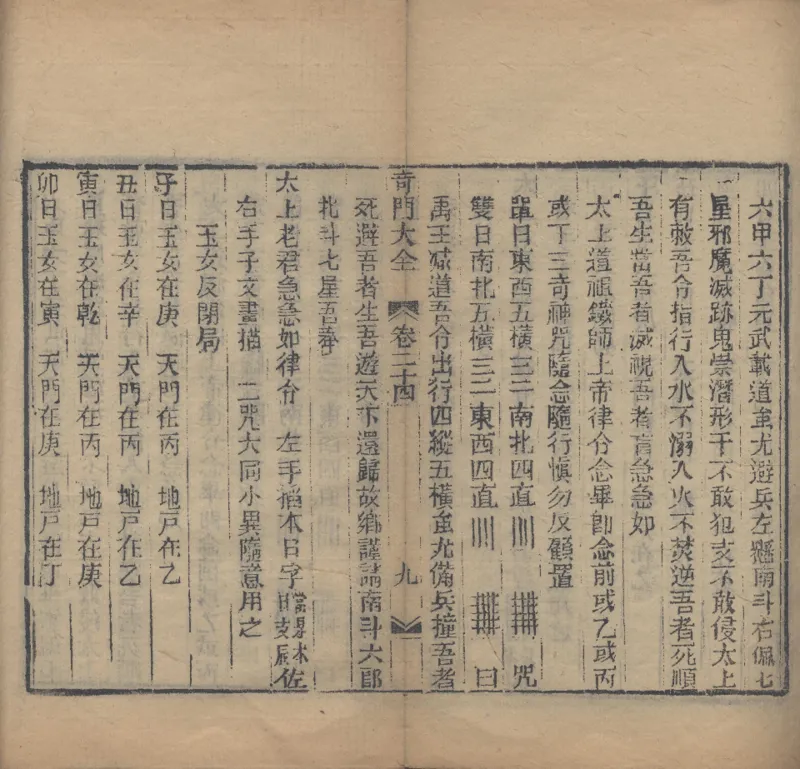 六甲六丁元武載道蚩尤避兵左懸南斗右佩七
星邪魔滅跡鬼祟潛形干不敢犯支不敢侵太上
有敕吾令指行入水不溺入火不焚逆吾者死順
吾生當吾者滅視吾者盲急急如
太上道祖鐵師上帝律令念畢卽念前或乙或丙
或丁三奇神咒隨念隨行愼勿反顧置
單日東西五橫三二南北四直||||　咒
雙日南北五橫三二東西四直||||　曰
禹王減道吾令出行四縱五橫蚩尤備兵撞吾者
奇門大全　卷二十四　九
死避吾者生吾遊天下還歸故鄉謹請南斗六郎
北斗七星吾奉
太上老君急急如律令　左手搯本日字當畧本日支辰佐
右手子文畫描　二咒大同小異隨意用之
玉女反閉局
子日玉女在庚　天門在丙　地戸在乙
丑日玉女在辛　天門在丙　地戸在乙
寅日玉女在乾　天門在丙　地戸在庚
卯日玉女在寅　天門在庚　地戸在丁